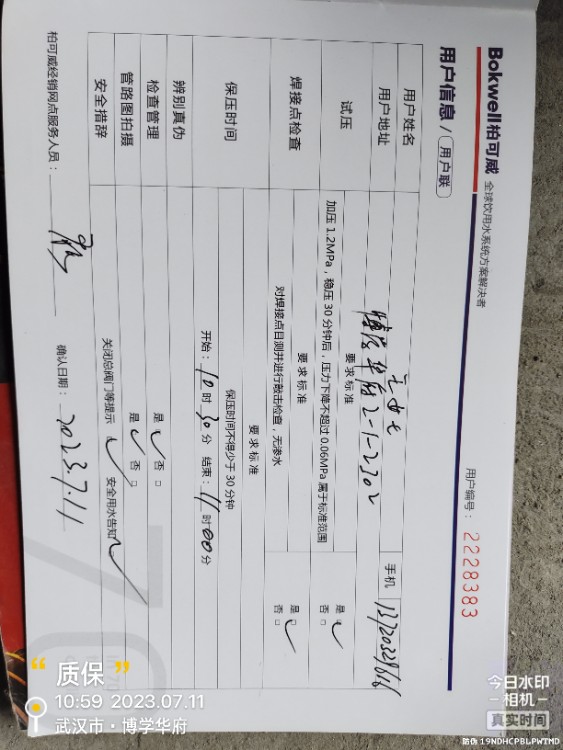 Bokwell柏可威 全球饮用水系统方案解决者
用户编号：2228383
用户信息 / 用户联
用户姓名
手机 13720329616
用户地址 博学华府2-1-2302
试压
要求标准
加压 1.2MPa，稳压 30 分钟后，压力下降不超过 0.06MPa 属于标准范围
是 ✓
否 □
焊接点检查
要求标准
对焊接点目测并进行敲击检查，无渗水
是 ✓
否 □
保压时间
要求标准
保压时间不得少于 30 分钟
开始：10 时 30 分 结束：11 时 00 分
辨别真伪
检查管理 是 ✓ 否 □
管路图拍摄 是 ✓ 否 □
安全措辞 关闭总阀门等提示 ✓ 安全用水告知 ✓
柏可威经销网点服务人员：
确认日期：2023.7.11
“质保”
10:59 2023.07.11
武汉市·博学华府
今日水印
-相机-
真实时间
防伪 19NDHCPBLPWTMD